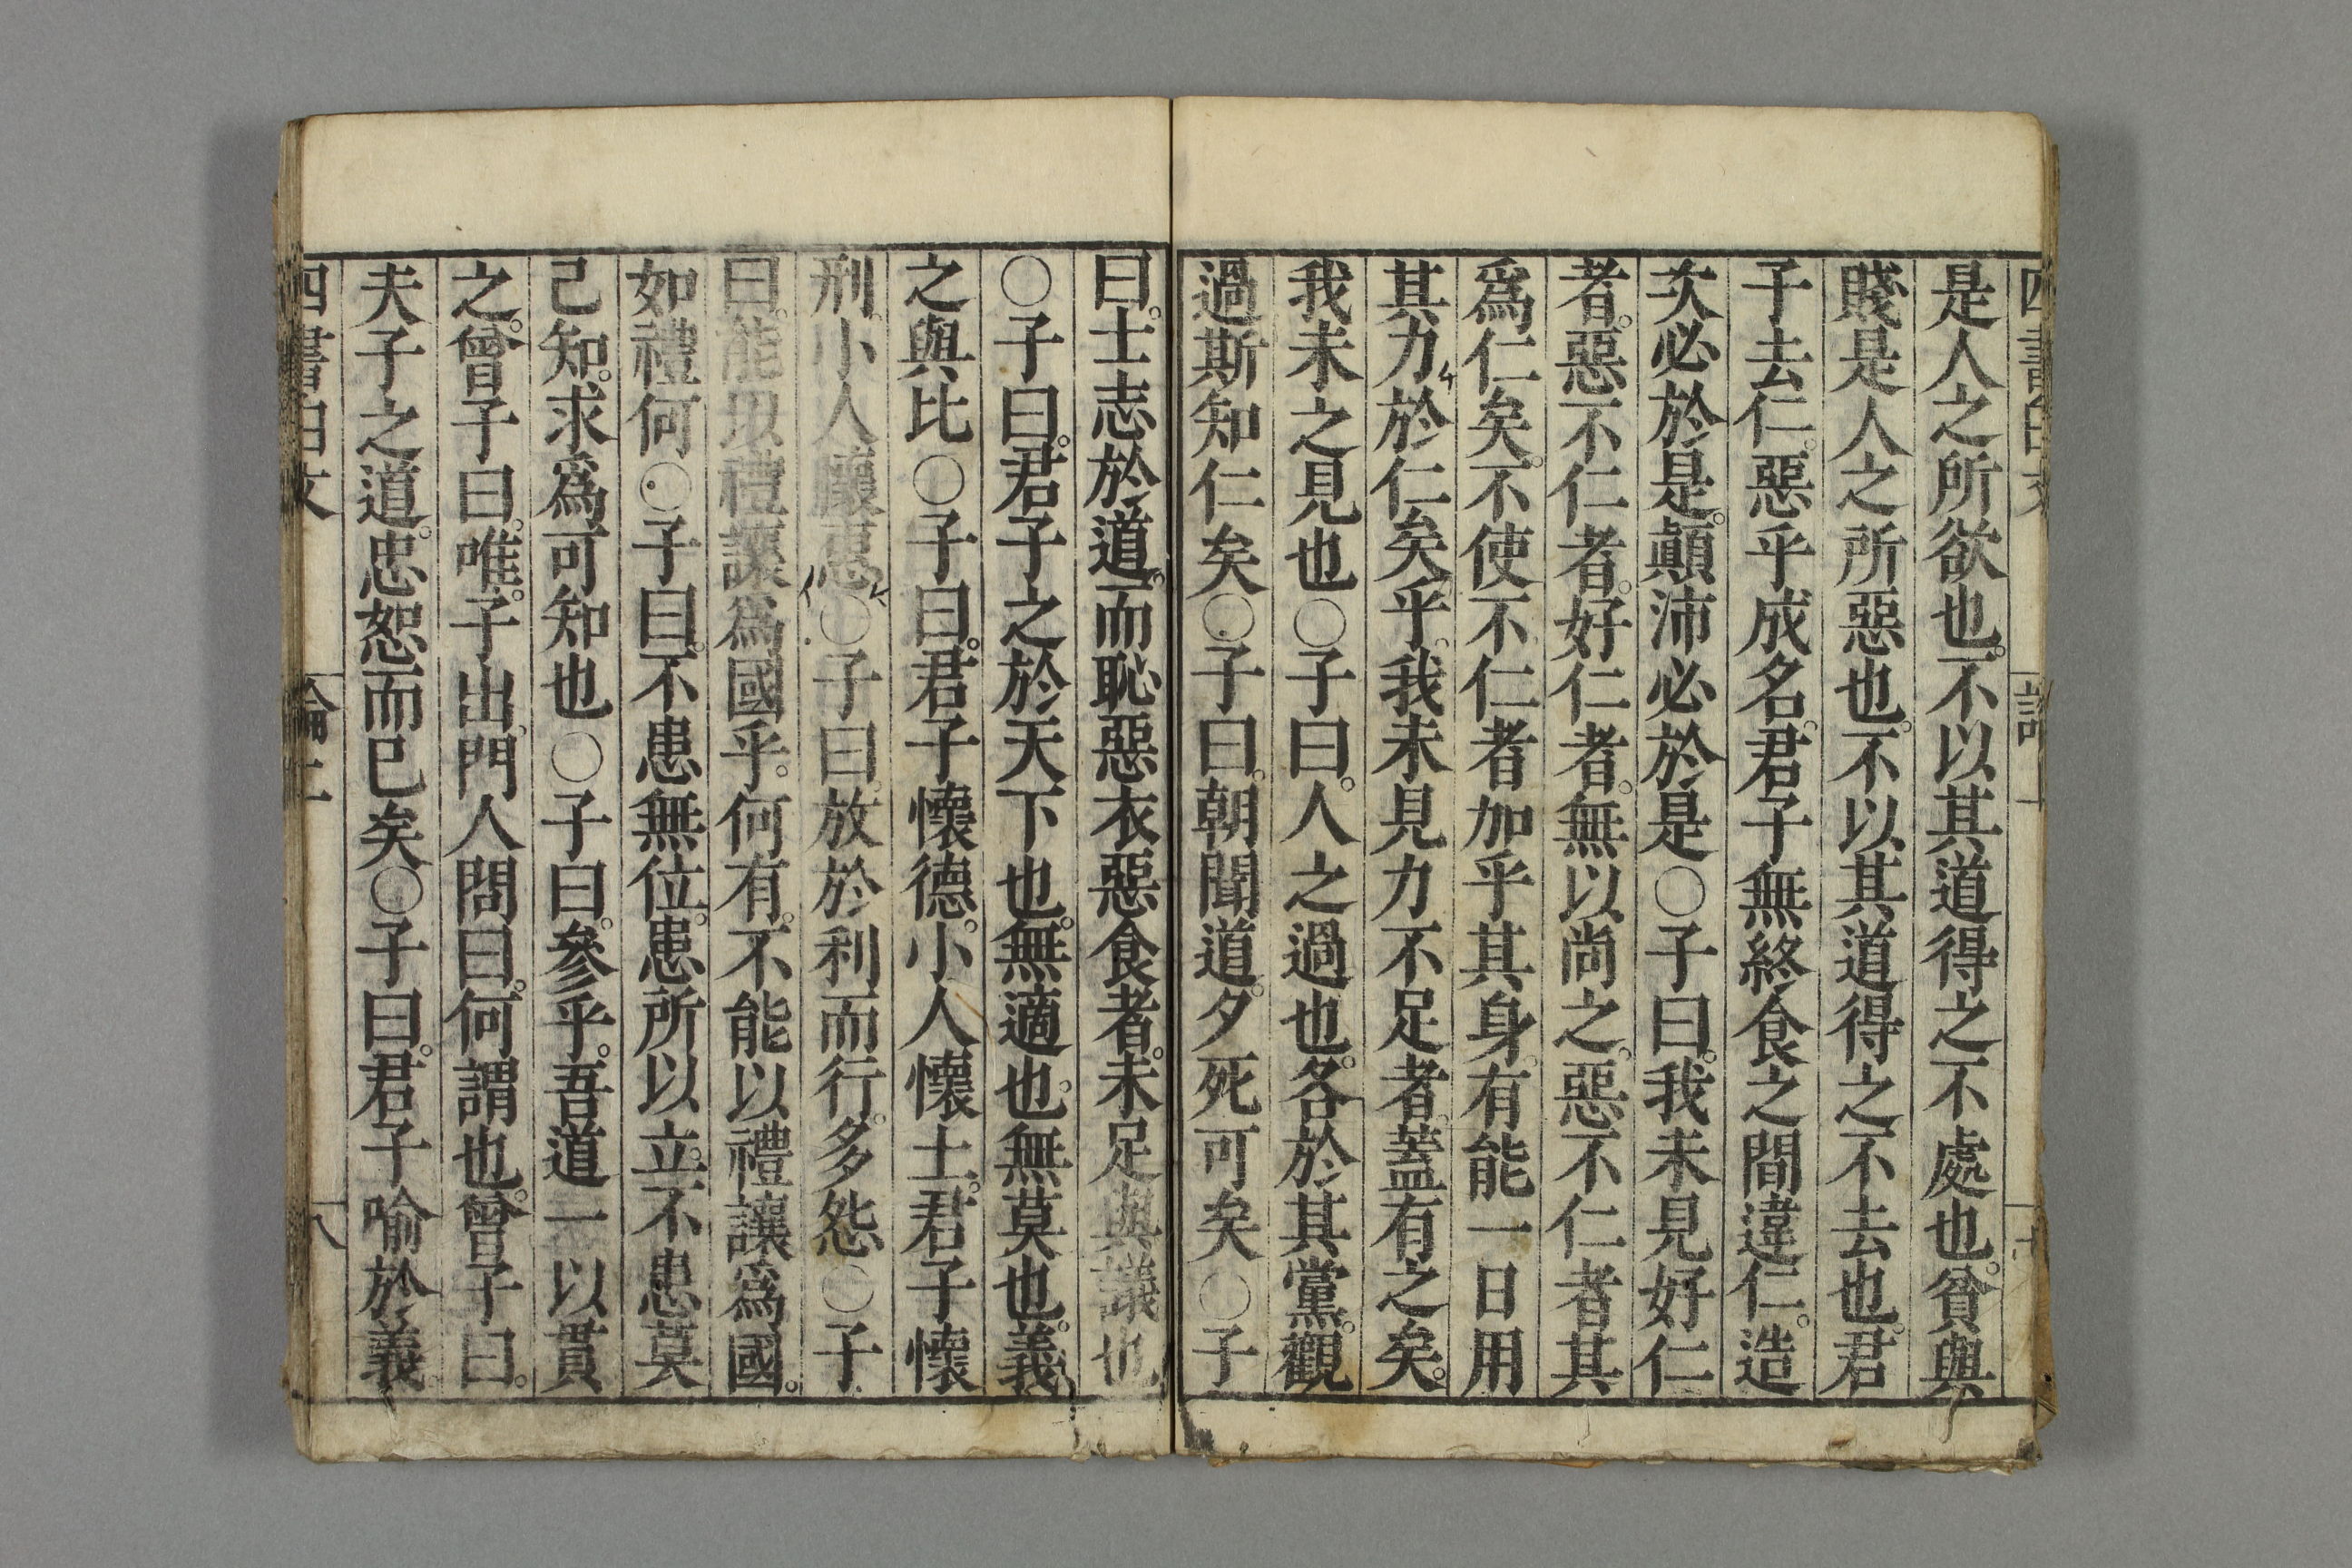 是人之所欲也。不以其道得之不處也。貧與
賤是人之所惡也。不以其道得之不去也。君
子去仁。惡乎成名。君子無終食之間違仁。造
次必於是。顛沛必於是○子曰。我未見好仁
者。惡不仁者。好仁者。無以尚之。惡不仁者其
爲仁矣。不使不仁者加乎其身。有能一日用
其力於仁矣乎。我未見力不足者。蓋有之矣。
我未之見也○子曰。人之過也。各於其黨。觀
過斯知仁矣○子曰。朝聞道。夕死可矣○子
曰。士志於道。而恥惡衣惡食者。未足與議也
○子曰。君子之於天下也。無適也。無莫也。義
之與比○子曰。君子懷德。小人懷土。君子懷
刑。小人懷惠○子曰。放於利而行。多怨○子
曰。能以禮讓爲國乎。何有。不能以禮讓爲國。
如禮何○子曰。不患無位。患所以立。不患莫
己知。求爲可知也○子曰。參乎。吾道一以貫
之。曾子曰。唯。子出。門人問曰。何謂也。曾子曰。
夫子之道。忠恕而已矣○子曰。君子喻於義。
四書白文 論上 八